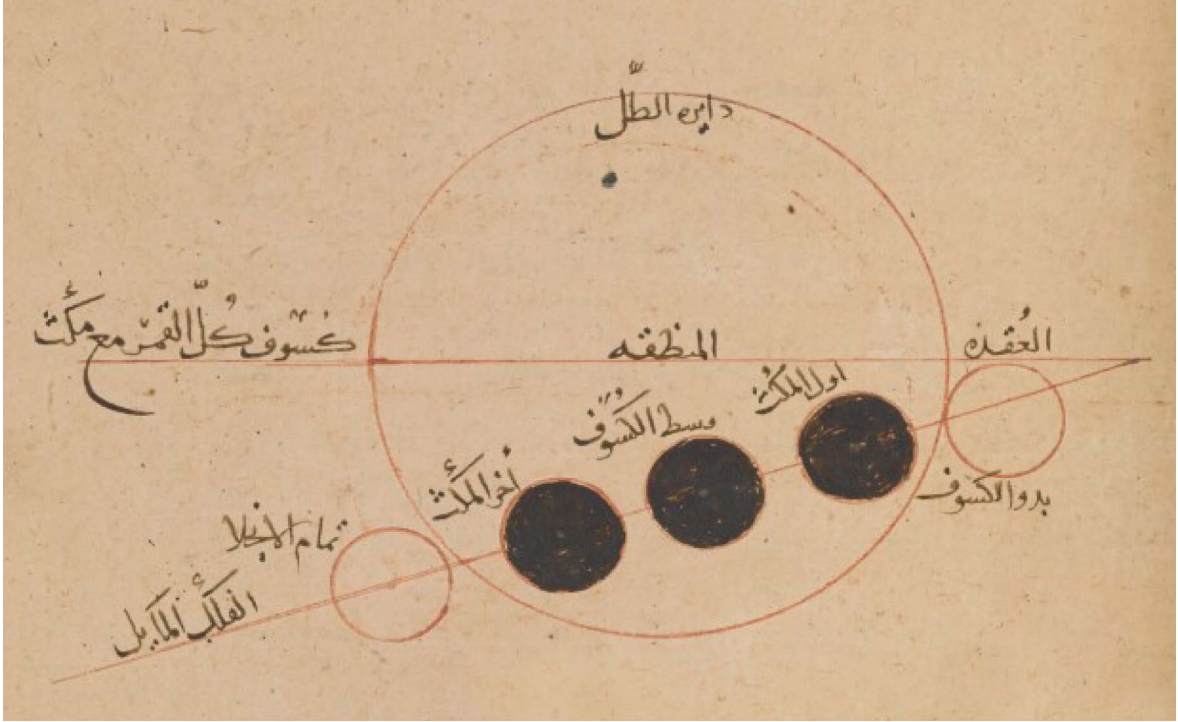 دايره الظّل
كسوف كلّ القمر مع مكث
المنطقه
العُقده
اول المكث
وسط الكسوف
أخر المكث
بدو الكسوف
تمام الانجلا
الفلك المايل